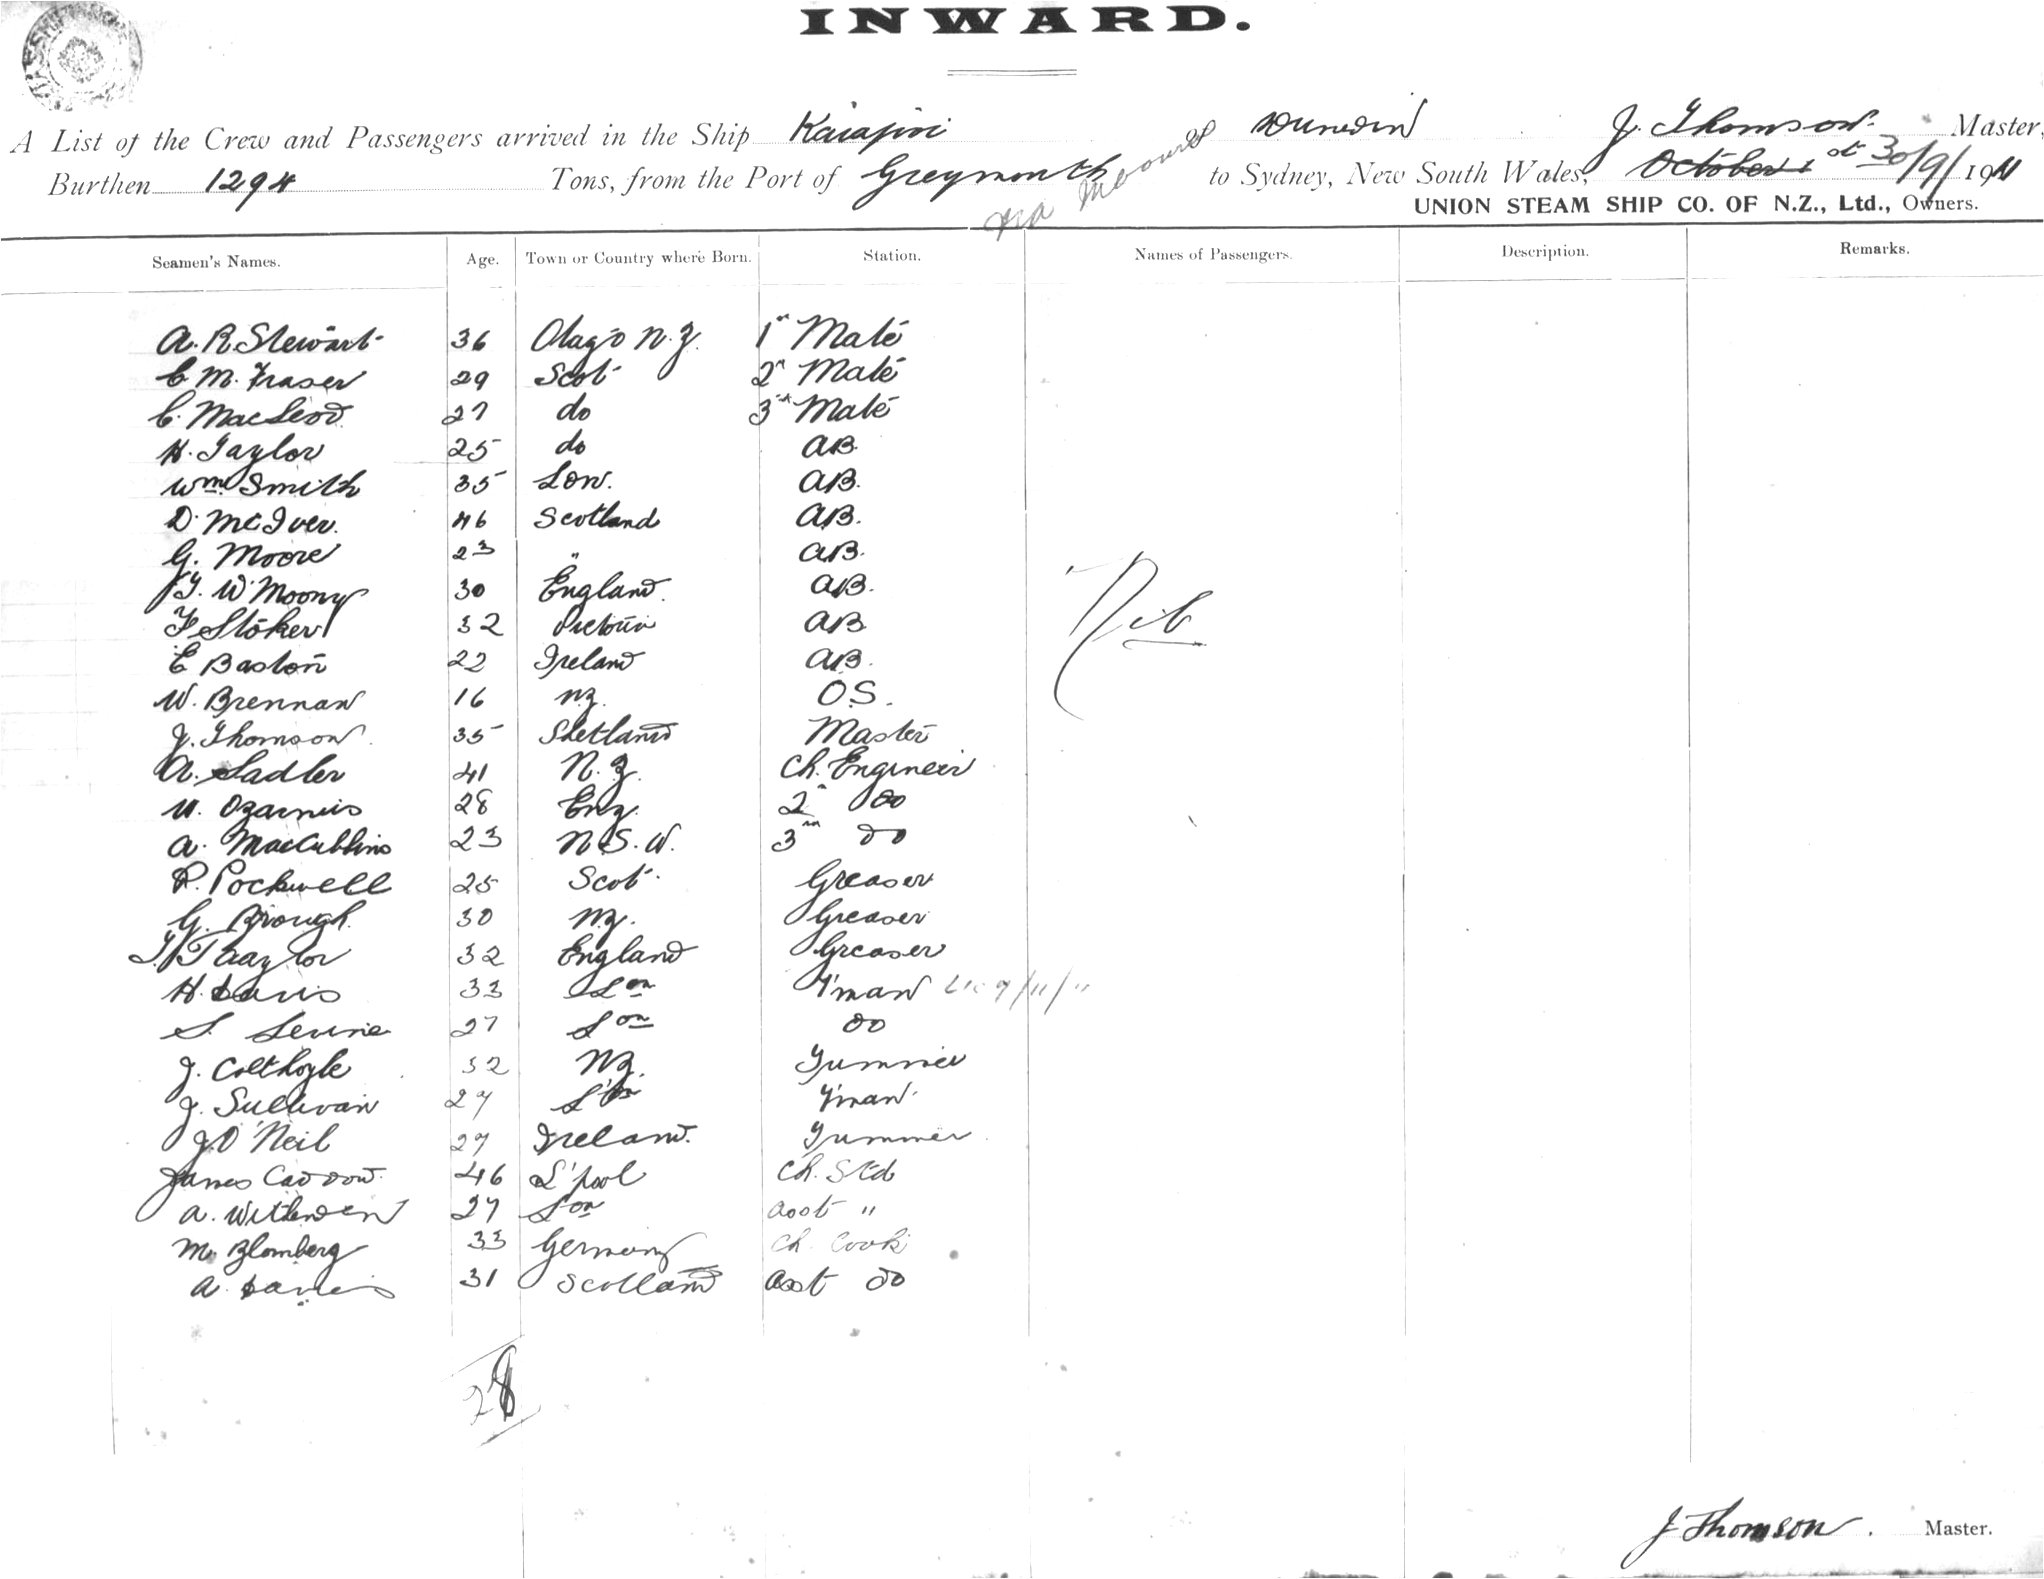 INWARD.
A List of the Crew and Passengers arrived in the Ship of Dunedin J. Thomson Master,
Burthen 1294 Tons, from the Port of Greymouth to Sydney, New South Wales, 30/9/1911
via
UNION STEAM SHIP CO. OF N.Z., Ltd., Owners.
Seamen's Names. Age. Town or Country where Born. Station. Names of Passengers. Description. Remarks.
A. R. Stewart 36 Otago N.Z. 1st Mate
C M. Fraser 29 Scot 2nd Mate
C. MacLeod 27 do 3rd Mate
H. Taylor 25 do AB
Wm Smith 35 Lon. AB.
D. McIver. 46 Scotland AB.
G. Moore 23 " AB.
W Moony 30 England. AB.
F Stoker 32 Victoria AB
E Baston 22 Ireland AB.
W. Brennan 16 NZ. O.S.
J. Thomson 35 Shetland Master
A. Sadler 41 N.Z. Ch. Engineer
28 Eng. 2nd do
A. MacCubbins 23 N.S.W. 3rd do
Nil
25 Scot. Greaser
G. Brough 30 NZ. Greaser
Taaylor 32 England Greaser
H. Davis 33 Lon F'man 9/11/11
S. 27 Lon do
J. 32 NZ. Trimmer
J. Sullivan 27 L'on F'man
J. O'Neil 27 Ireland. Trimmer
James Caddow. 46 L'pool Ch. Std
A. 27 Lon asst "
M. Blomberg 33 Germany Ch. Cook
A. Davies 31 Scotland asst do
28
J Thomson. Master.